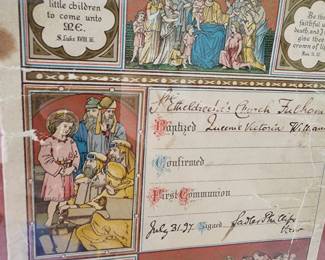 little children
to come unto
ME.
S. Luke XVIII. 16.
Be th
faithful
death, and I
give the
crown of l
Rev. II. 10.
St. Etheldreda's Church Fulham
Baptized Queenie Victoria William
Confirmed
First Communion
July 31. 97. Signed
Vicar